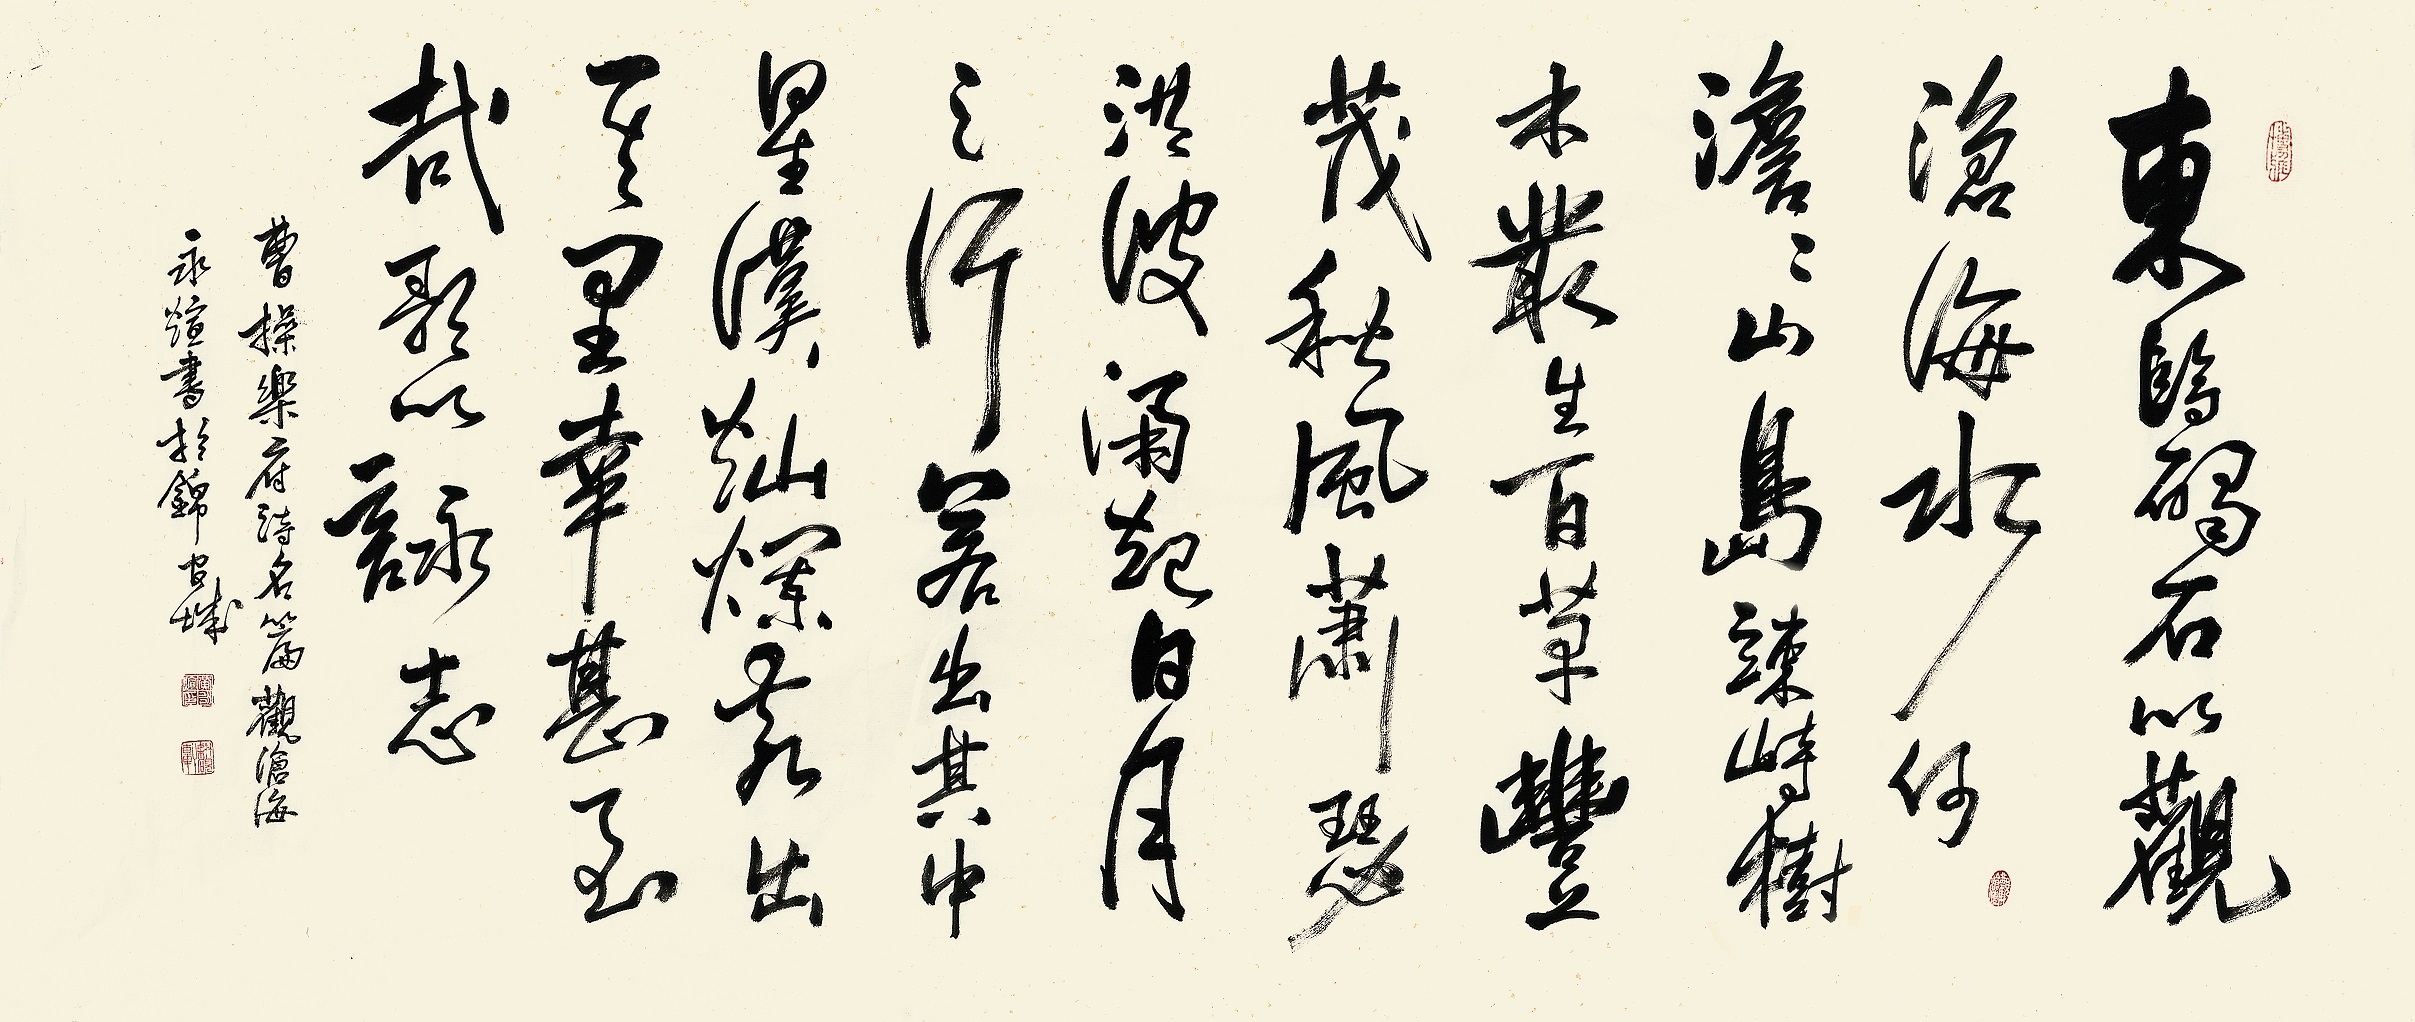 東臨碣石以觀
滄海水何
澹〻山島竦峙樹
木叢生百草豐
茂秋風蕭瑟
洪波涌起日月
之行若出其中
星漢燦爛若出
其里幸甚至
哉歌以詠志
曹操樂府詩名篇觀滄海
永煊書於錦官城